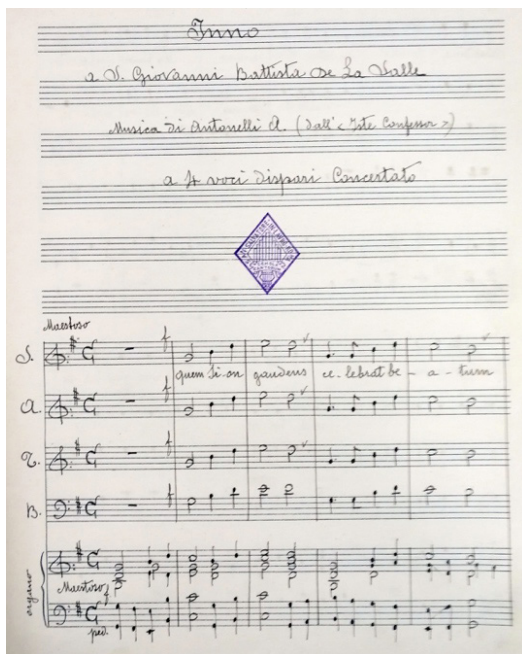 Inno
a S. Giovanni Battista De La Salle
Musica di Antonelli A. (dall' < Iste Confessor >)
a 4 voci dispari Concertato
Maestoso
S.
f
quem Si-on gaudens ce-lebrat be-a-tum
A.
f
T.
f
B.
f
organo
Maestoso f
ped.